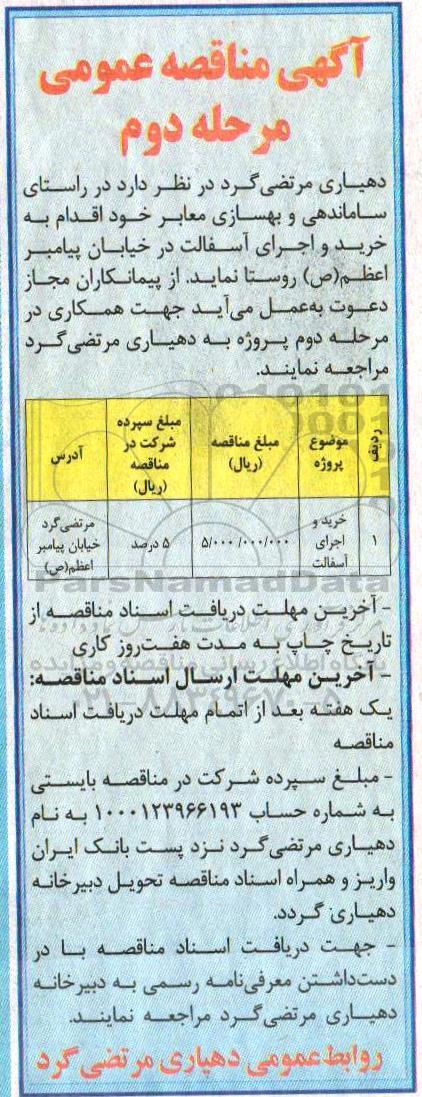 آگهی مناقصه عمومی
مرحله دوم
دهیاری مرتضی‌گرد در نظر دارد در راستای
ساماندهی و بهسازی معابر خود اقدام به
خرید و اجرای آسفالت در خیابان پیامبر
اعظم(ص) روستا نماید. از پیمانکاران مجاز
دعوت به‌عمل می‌آید جهت همکاری در
مرحله دوم پروژه به دهیاری مرتضی‌گرد
مراجعه نمایند.
ردیف | موضوع پروژه | مبلغ مناقصه (ریال) | مبلغ سپرده شرکت در مناقصه (ریال) | آدرس
۱ | خرید و اجرای آسفالت | ۵/۰۰۰/۰۰۰/۰۰۰ | ۵ درصد | مرتضی‌گرد خیابان پیامبر اعظم(ص)
ParsNamadData
- آخرین مهلت دریافت اسناد مناقصه از
تاریخ چاپ به مدت هفت‌روز کاری
پایگاه اطلاع رسانی مناقصه و مزایده
- آخرین مهلت ارسال اسناد مناقصه:
یک هفته بعد از اتمام مهلت دریافت اسناد
مناقصه
- مبلغ سپرده شرکت در مناقصه بایستی
به شماره حساب ۱۰۰۰۱۲۳۹۶۶۱۹۳ به نام
دهیاری مرتضی‌گرد نزد پست بانک ایران
واریز و همراه اسناد مناقصه تحویل دبیرخانه
دهیاری گردد.
- جهت دریافت اسناد مناقصه با در
دست‌داشتن معرفی‌نامه رسمی به دبیرخانه
دهیاری مرتضی‌گرد مراجعه نمایند.
روابط‌عمومی دهیاری مرتضی گرد